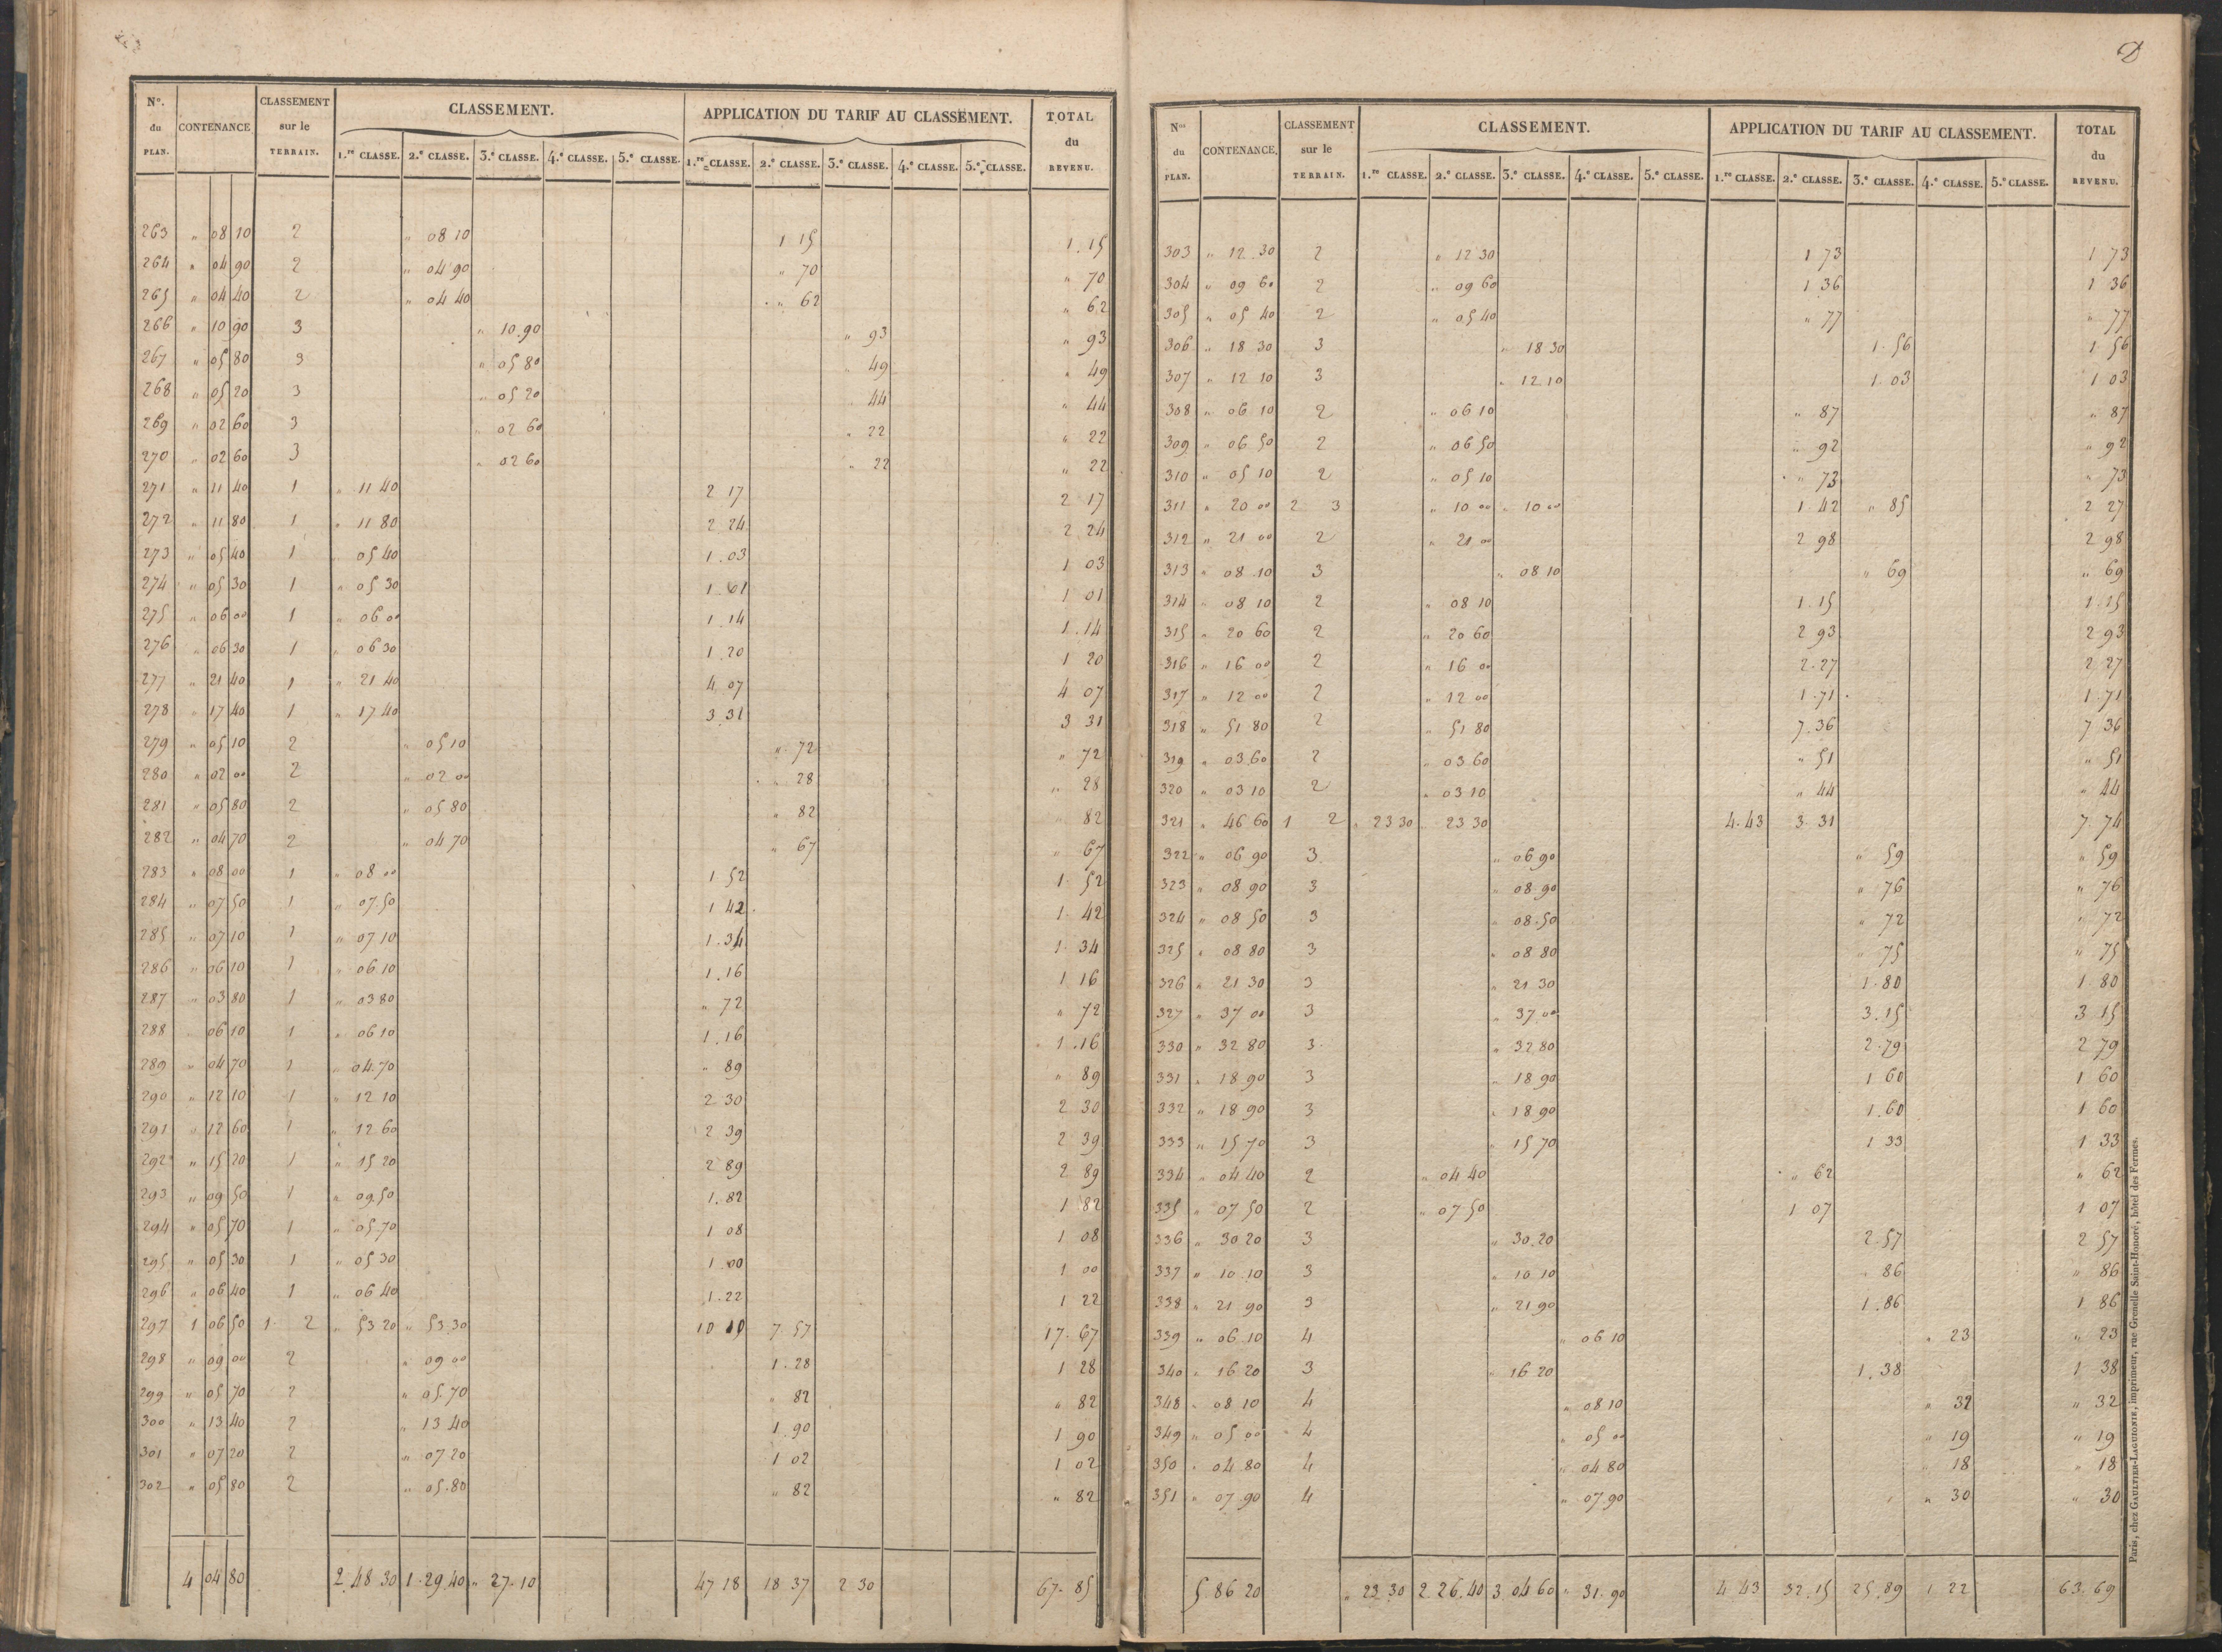 N°. du PLAN. CONTENANCE CLASSEMENT sur le TERRAIN. CLASSEMENT. APPLICATION DU TARIF AU CLASSEMENT. TOTAL du REVENU.
1.re CLASSE. 2.e CLASSE. 3.e CLASSE. 4.e CLASSE. 5.e CLASSE. 1.re CLASSE. 2.e CLASSE. 3.e CLASSE. 4.e CLASSE. 5.e CLASSE.
263 " 08 10 2 " 08 10 1 15 1.15
264 " 04 90 2 " 04 90 " 70 " 70
265 " 04 40 2 " 04 40 " 62 " 62
266 " 10 90 3 " 10.90 " 93 " 93
267 " 05 80 3 " 05 80 " 49 " 49
268 " 05 20 3 " 05 20 44 " 44
269 " 02 60 3 " 02 60 " 22 " 22
270 " 02 60 3 " 02 60 " 22 " 22
271 " 11 40 1 " 11 40 2 17 2 17
272 " 11 80 1 " 11 80 2 24 2 24
273 " 05 40 1 " 05 40 1.03 1 03
274 " 05 30 1 " 05 30 1.01 1 01
275 " 06 00 1 " 06 00 1.14 1.14
276 " 06 30 1 " 06 30 1.20 1 20
277 " 21 40 1 " 21 40 4 07 4 07
278 " 17 40 1 " 17 40 3 31 3 31
279 " 05 10 2 " 05 10 " 72 " 72
280 " 02 00 2 " 02 00 " 28 " 28
281 " 05 80 2 " 05 80 " 82 " 82
282 " 04 70 2 " 04 70 " 67 " 67
283 " 08 00 1 " 08 00 1 52 1 52
284 " 07 50 1 " 07.50 1 42 1 42
285 " 07 10 1 " 07 10 1.34 1 34
286 " 06 10 1 " 06 10 1.16 1 16
287 " 03 80 1 " 03 80 " 72 " 72
288 " 06 10 1 " 06 10 1.16 1.16
289 " 04 70 1 " 04.70 " 89 " 89
290 " 12 10 1 " 12 10 2 30 2 30
291 " 12 60 1 " 12 60 2 39 2 39
292 " 15 20 1 " 15 20 2 89 2 89
293 " 09 50 1 " 09.50 1.82 1 82
294 " 05 70 1 " 05 70 1 08 1 08
295 " 05 30 1 " 05 30 1.00 1 00
296 " 06 40 1 " 06 40 1.22 1 22
297 1 06 50 1 2 " 53 20 " 53.30 10 10 7 57 17.67
298 " 09 00 2 " 09 00 1.28 1 28
299 " 05 70 2 " 05.70 " 82 " 82
300 " 13 40 2 " 13 40 1.90 1 90
301 " 07 20 2 " 07 20 1 02 1 02
302 " 05 80 2 " 05.80 " 82 " 82
4 04 80 2.48 30 1.29 40 " 27.10 47 18 18 37 2 30 67.85
N.os du PLAN. CONTENANCE. CLASSEMENT sur le TERRAIN. CLASSEMENT. APPLICATION DU TARIF AU CLASSEMENT. TOTAL du REVENU.
1.re CLASSE. 2.e CLASSE. 3.e CLASSE. 4.e CLASSE. 5.e CLASSE. 1.re CLASSE. 2.e CLASSE. 3.e CLASSE. 4.e CLASSE. 5.e CLASSE.
303 " 12 30 2 " 12 30 1 73 1 73
304 " 09 60 2 " 09 60 1 36 1 36
305 " 05 40 2 " 05 40 " 77 " 77
306 " 18 30 3 " 18 30 1.56 1 56
307 " 12 10 3 " 12 10 1.03 1 03
308 " 06 10 2 " 06 10 " 87 " 87
309 " 06 50 2 " 06 50 " 92 " 92
310 " 05 10 2 " 05 10 " 73 " 73
311 " 20 00 2 3 " 10 00 " 10 00 1 42 " 85 2 27
312 " 21 00 2 " 21 00 2 98 2 98
313 " 08 10 3 " 08 10 " 69 " 69
314 " 08 10 2 " 08 10 1.15 1.15
315 " 20 60 2 " 20 60 2 93 2 93
316 " 16 00 2 " 16 00 2.27 2 27
317 " 12 00 2 " 12 00 1.71 1.71
318 " 51 80 2 " 51 80 7.36 7 36
319 " 03.60 2 " 03 60 " 51 " 51
320 " 03 10 2 " 03 10 " 44 " 44
321 " 46 60 1 2 " 23 30 " 23 30 4.43 3.31 7.74
322 " 06 90 3 " 06 90 " 59 " 59
323 " 08 90 3 " 08 90 " 76 " 76
324 " 08 50 3 " 08.50 " 72 " 72
325 " 08 80 3 " 08 80 " 75 " 75
326 " 21 30 3 " 21 30 1.80 1.80
327 " 37 00 3 " 37 00 3.15 3 15
330 " 32 80 3 " 32 80 2.79 2 79
331 " 18 90 3 " 18 90 1 60 1 60
332 " 18 90 3 " 18 90 1.60 1 60
333 " 15 70 3 " 15 70 1 33 1 33
334 " 04 40 2 " 04 40 " 62 " 62
335 " 07 50 2 " 07 50 1 07 1 07
336 " 30 20 3 " 30.20 2.57 2 57
337 " 10 10 3 " 10 10 " 86 " 86
338 " 21 90 3 " 21 90 1.86 1 86
339 " 06 10 4 " 06 10 " 23 " 23
340 " 16 20 3 " 16 20 1.38 1 38
348 " 08 10 4 " 08 10 " 32 " 32
349 " 05 00 4 " 05 00 " 19 " 19
350 " 04 80 4 " 04 80 " 18 " 18
351 " 07 90 4 " 07.90 " 30 " 30
5.86 20 " 23 30 2 26.40 3 04 60 " 31.90 4 43 32.15 25.89 1 22 63.69
Paris, chez GAULTIER-LAGUIONIE, imprimeur, rue Grenelle Saint-Honoré, hôtel des Fermes.